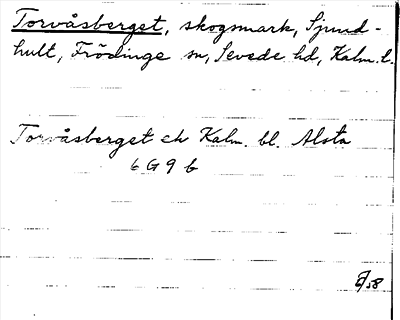 Torvåsberget, skogsmark, Sjund-
hult, Frödinge sn, Sevede hd, Kalm. l.
Torvåsberget ek Kalm. bl. Alsta
6 G 9 b
58